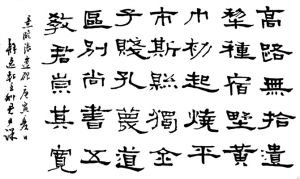 高路無拾遺
犂種宿野黃
巾初起燒平
市斯縣獨全
子賤孔蔑道
區別尚書五
教君崇其寬